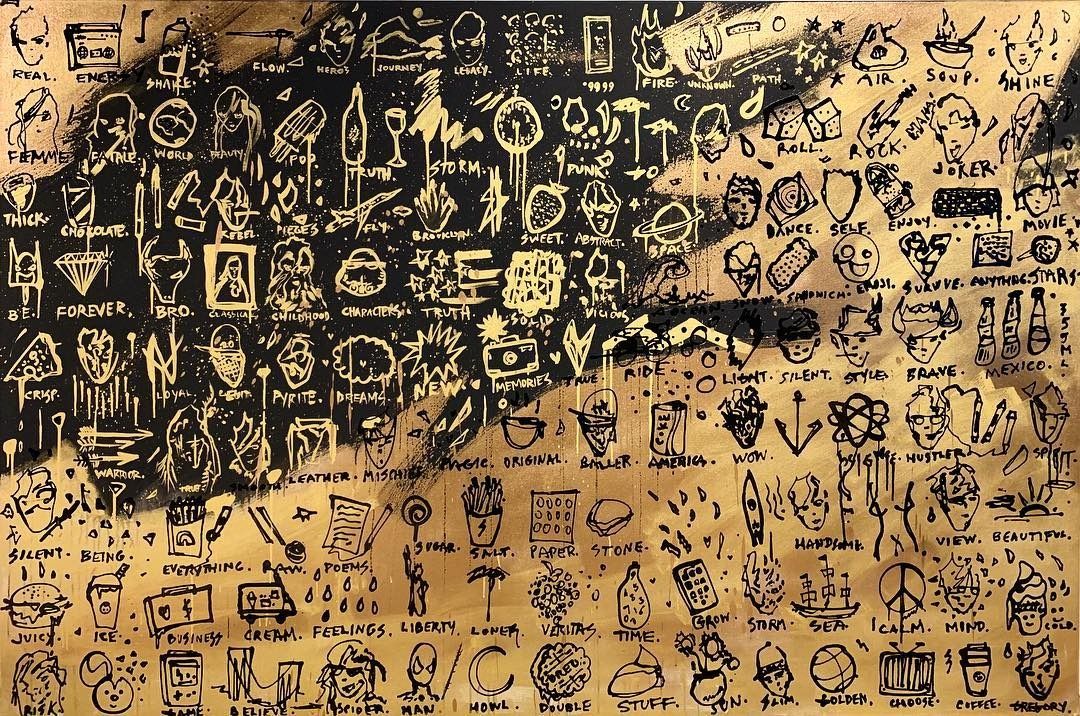 REAL. ENERGY SHAKE. FLOW. HEROS JOURNEY. LEGACY. LIFE. .9099 FIRE UNKNOWN. PATH AIR. SOUP. SHINE
FEMME FATALE. WORLD BEAUTY POP. TRUTH. STORM. PUNK. ROLL. ROCK. MIAMI JOKER.
THICK. CHOCOLATE. REBEL PIECES FLY. BROOKLYN. SWEET. ABSTRACT. SPACE DANCE. SELF. ENJOY MOVIE.
BE. FOREVER. BRO. CLASSICAL CHILDHOOD. CHARACTERS. TRUTH SOLID VICIOUS OCEAN SNOW SANDWICH. EMOJI. SURVIVE. ANYTHING. STARS
CRISP. LOYAL PYRITE. DREAMS. NEW. MEMORIES TRUE RIDE LIGHT. SILENT. STYLE. BRAVE. MEXICO.
WARRIOR. TRUE SMOOTH LEATHER. MISCHIEF MAGIC. ORIGINAL. BALLER. AMERICA. WOW. SCIENCE. HUSTLER SPIRIT.
SILENT. BEING. EVERYTHING. RAW. POEMS. SUGAR. SALT. PAPER. STONE. HANDSOME. VIEW. BEAUTIFUL.
JUICY. ICE. BUSINESS CREAM. FEELINGS. LIBERTY. LONER. VERITAS. TIME. GROW STORM. SEA. CALM. MIND. COLD.
RISK. GAME BELIEVE. SPIDER MAN HOWL. DOUBLE STUFF. SUN. SLIM. GOLDEN. CHOOSE. COFFEE. GREGORY.